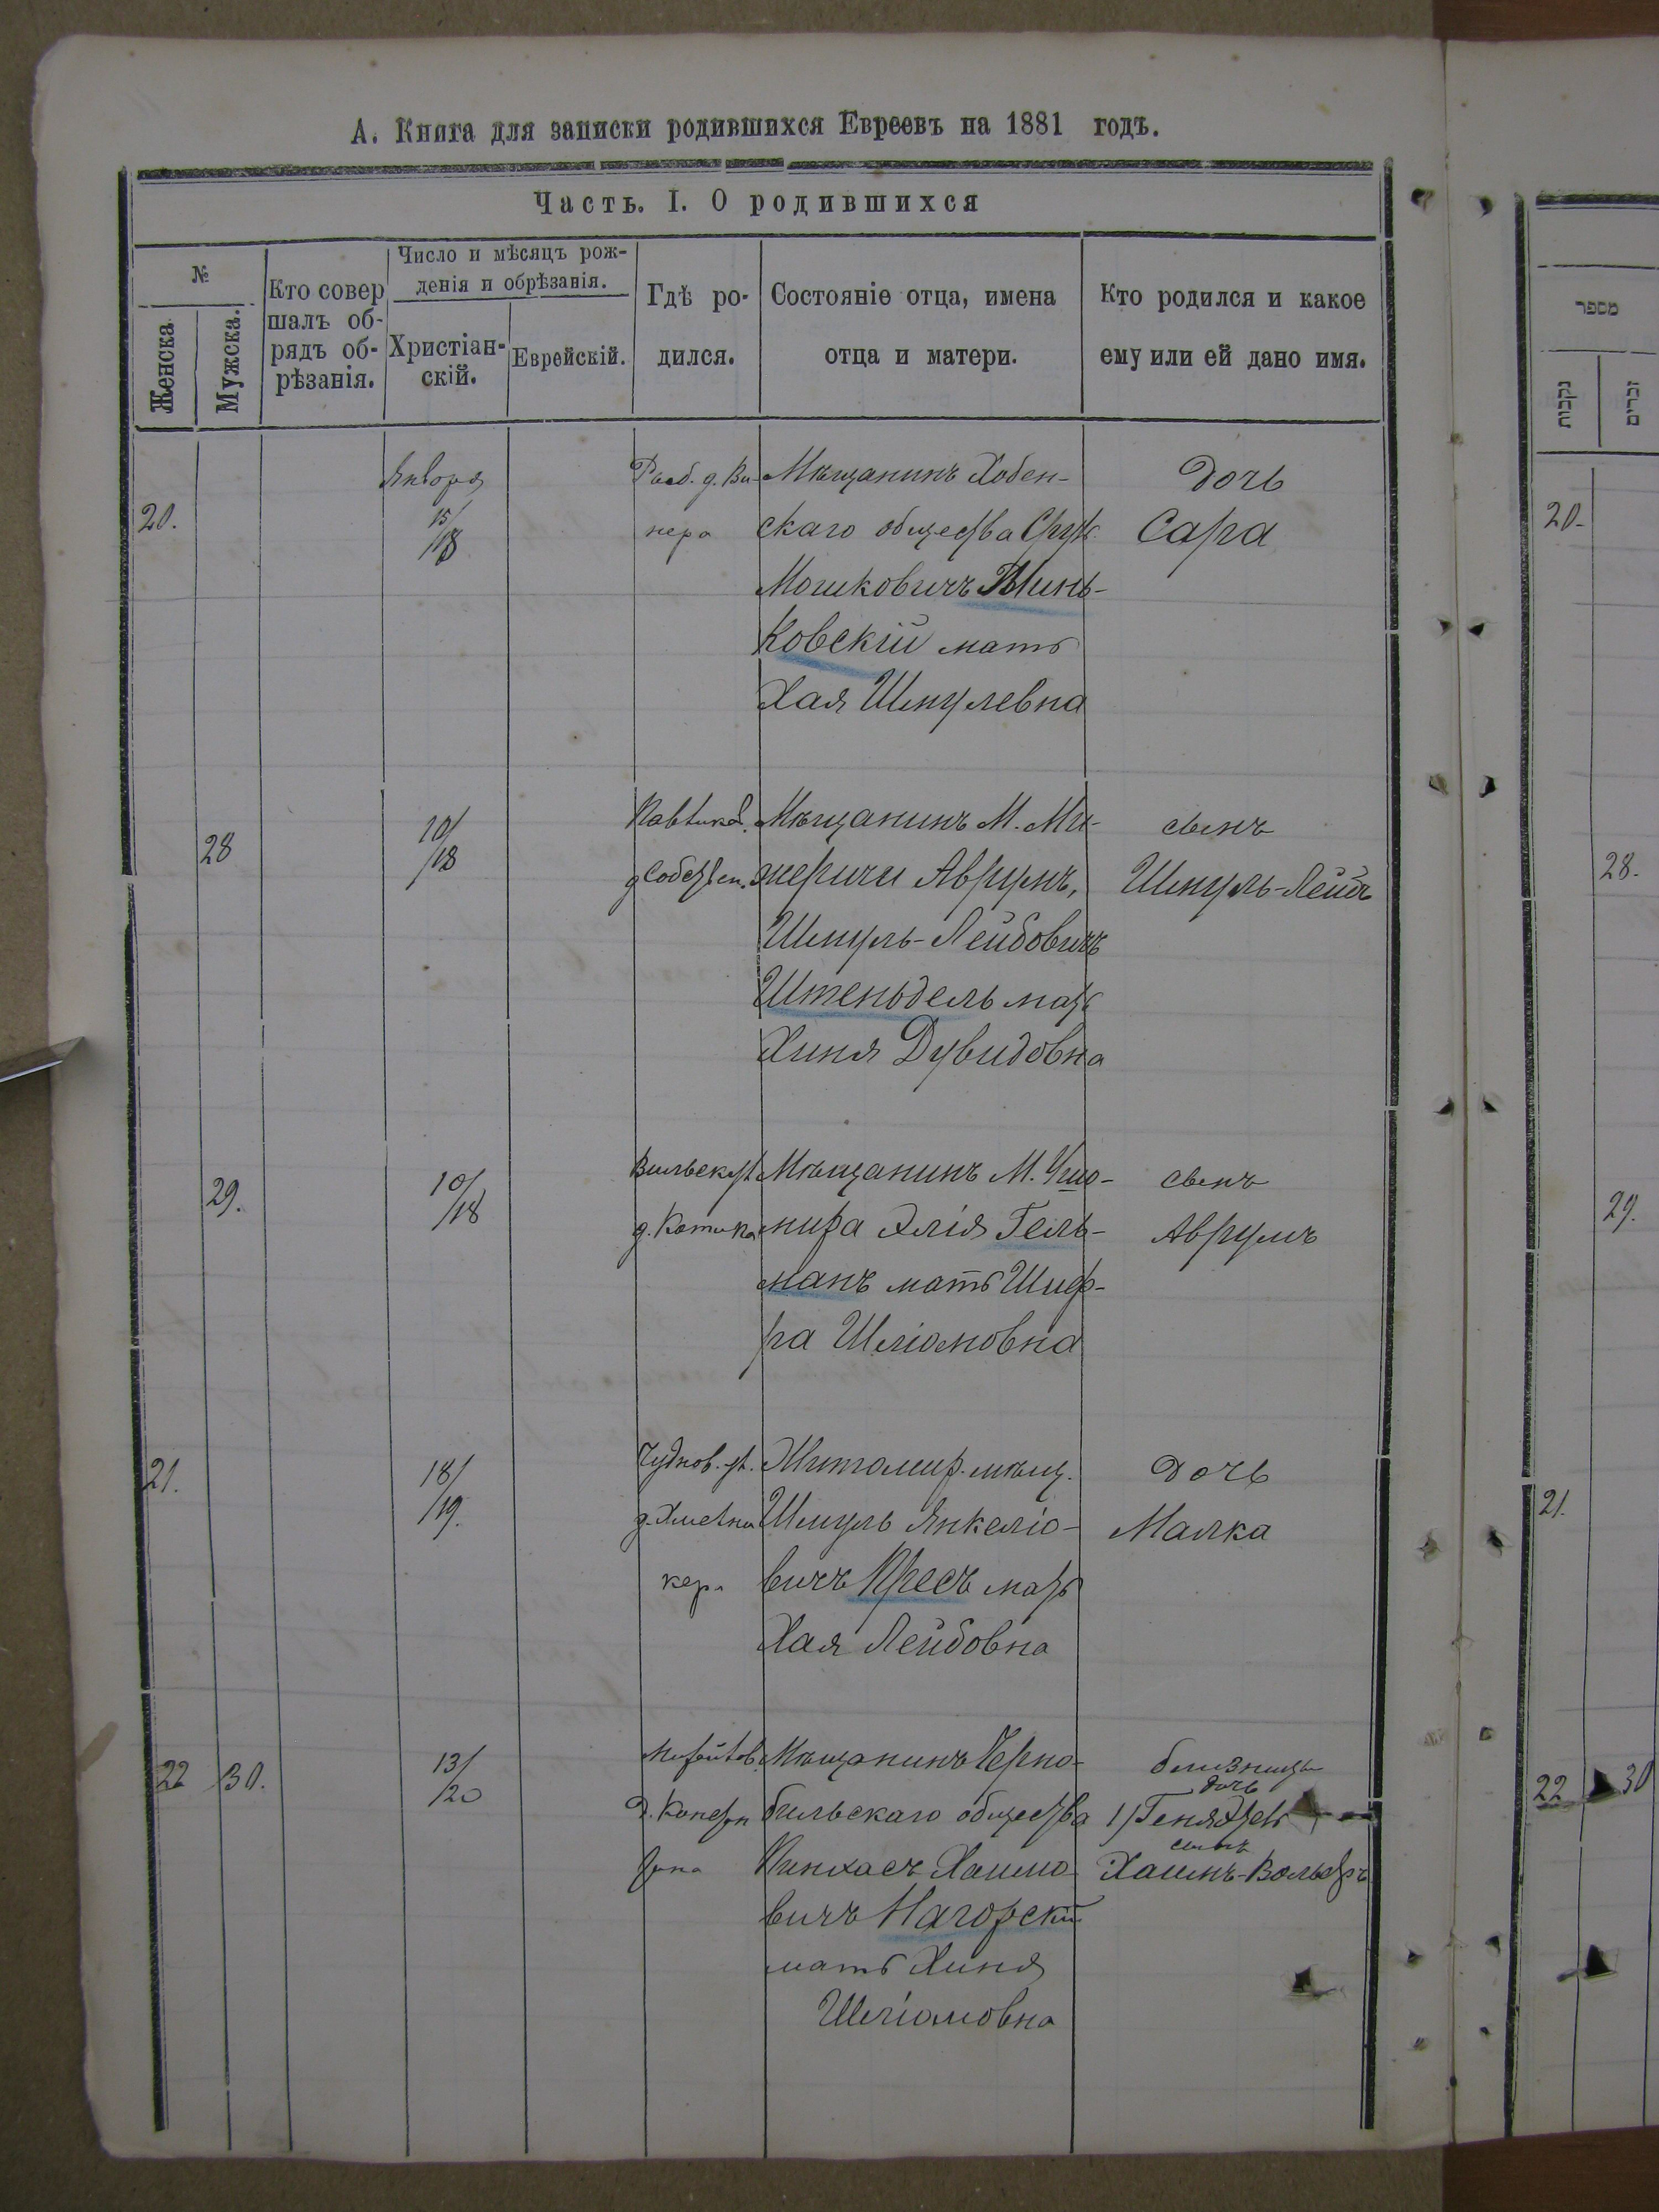 А. Книга для записки родившихся Евреевъ на 1881 годъ.
Часть. I. О родившихся
№
Женска
Мужска.
Кто совер
шалъ об-
рядъ об-
рѣзанія.
Число и мѣсяцъ рож-
денія и обрѣзанія.
Христіан-
скій.
Еврейскій.
Гдѣ ро-
дился.
Состояніе отца, имена
отца и матери.
Кто родился и какое
ему или ей дано имя.
מספר
נקבות
זכרים
20.
Января
15/
/18
д. Ви-
нера
Мѣщанинъ Хобен-
скаго общества Сруль
Мошковичъ Минь-
ковскій мать
Хая Шмулевна
Дочь
Сара
20-
28
10/
/18
д Собствен.
Мѣщанинъ М. Ми-
жеричи Аврумъ,
Шмуль-Лейбовичъ
Штеньдель мать
Хиня Дувидовна
сынъ
Шмуль-Лейбъ
28-
29.
10/
/18
Вильск ул.
д. Котика
Мѣщанинъ М.
Элія Гель-
манъ мать Шиф-
ра Шліомовна
сынъ
Аврумъ
29.
21.
18/
/19.
Чуднов. ул.
кера
Житомир. мѣщ.
Шмуль Янкеліо-
вичъ Кресъ мать
Хая Лейбовна
Дочь
Малка
21.
22 30.
13/
/20
Мѣщанинъ Черно-
бильскаго общества
Пинхасъ Хаимо-
вичъ Нагорскій
мать Хиня
Шліомовна
близнецы
дочь
1/ Геня
сынъ
Хаимъ-Вольфъ
22 30